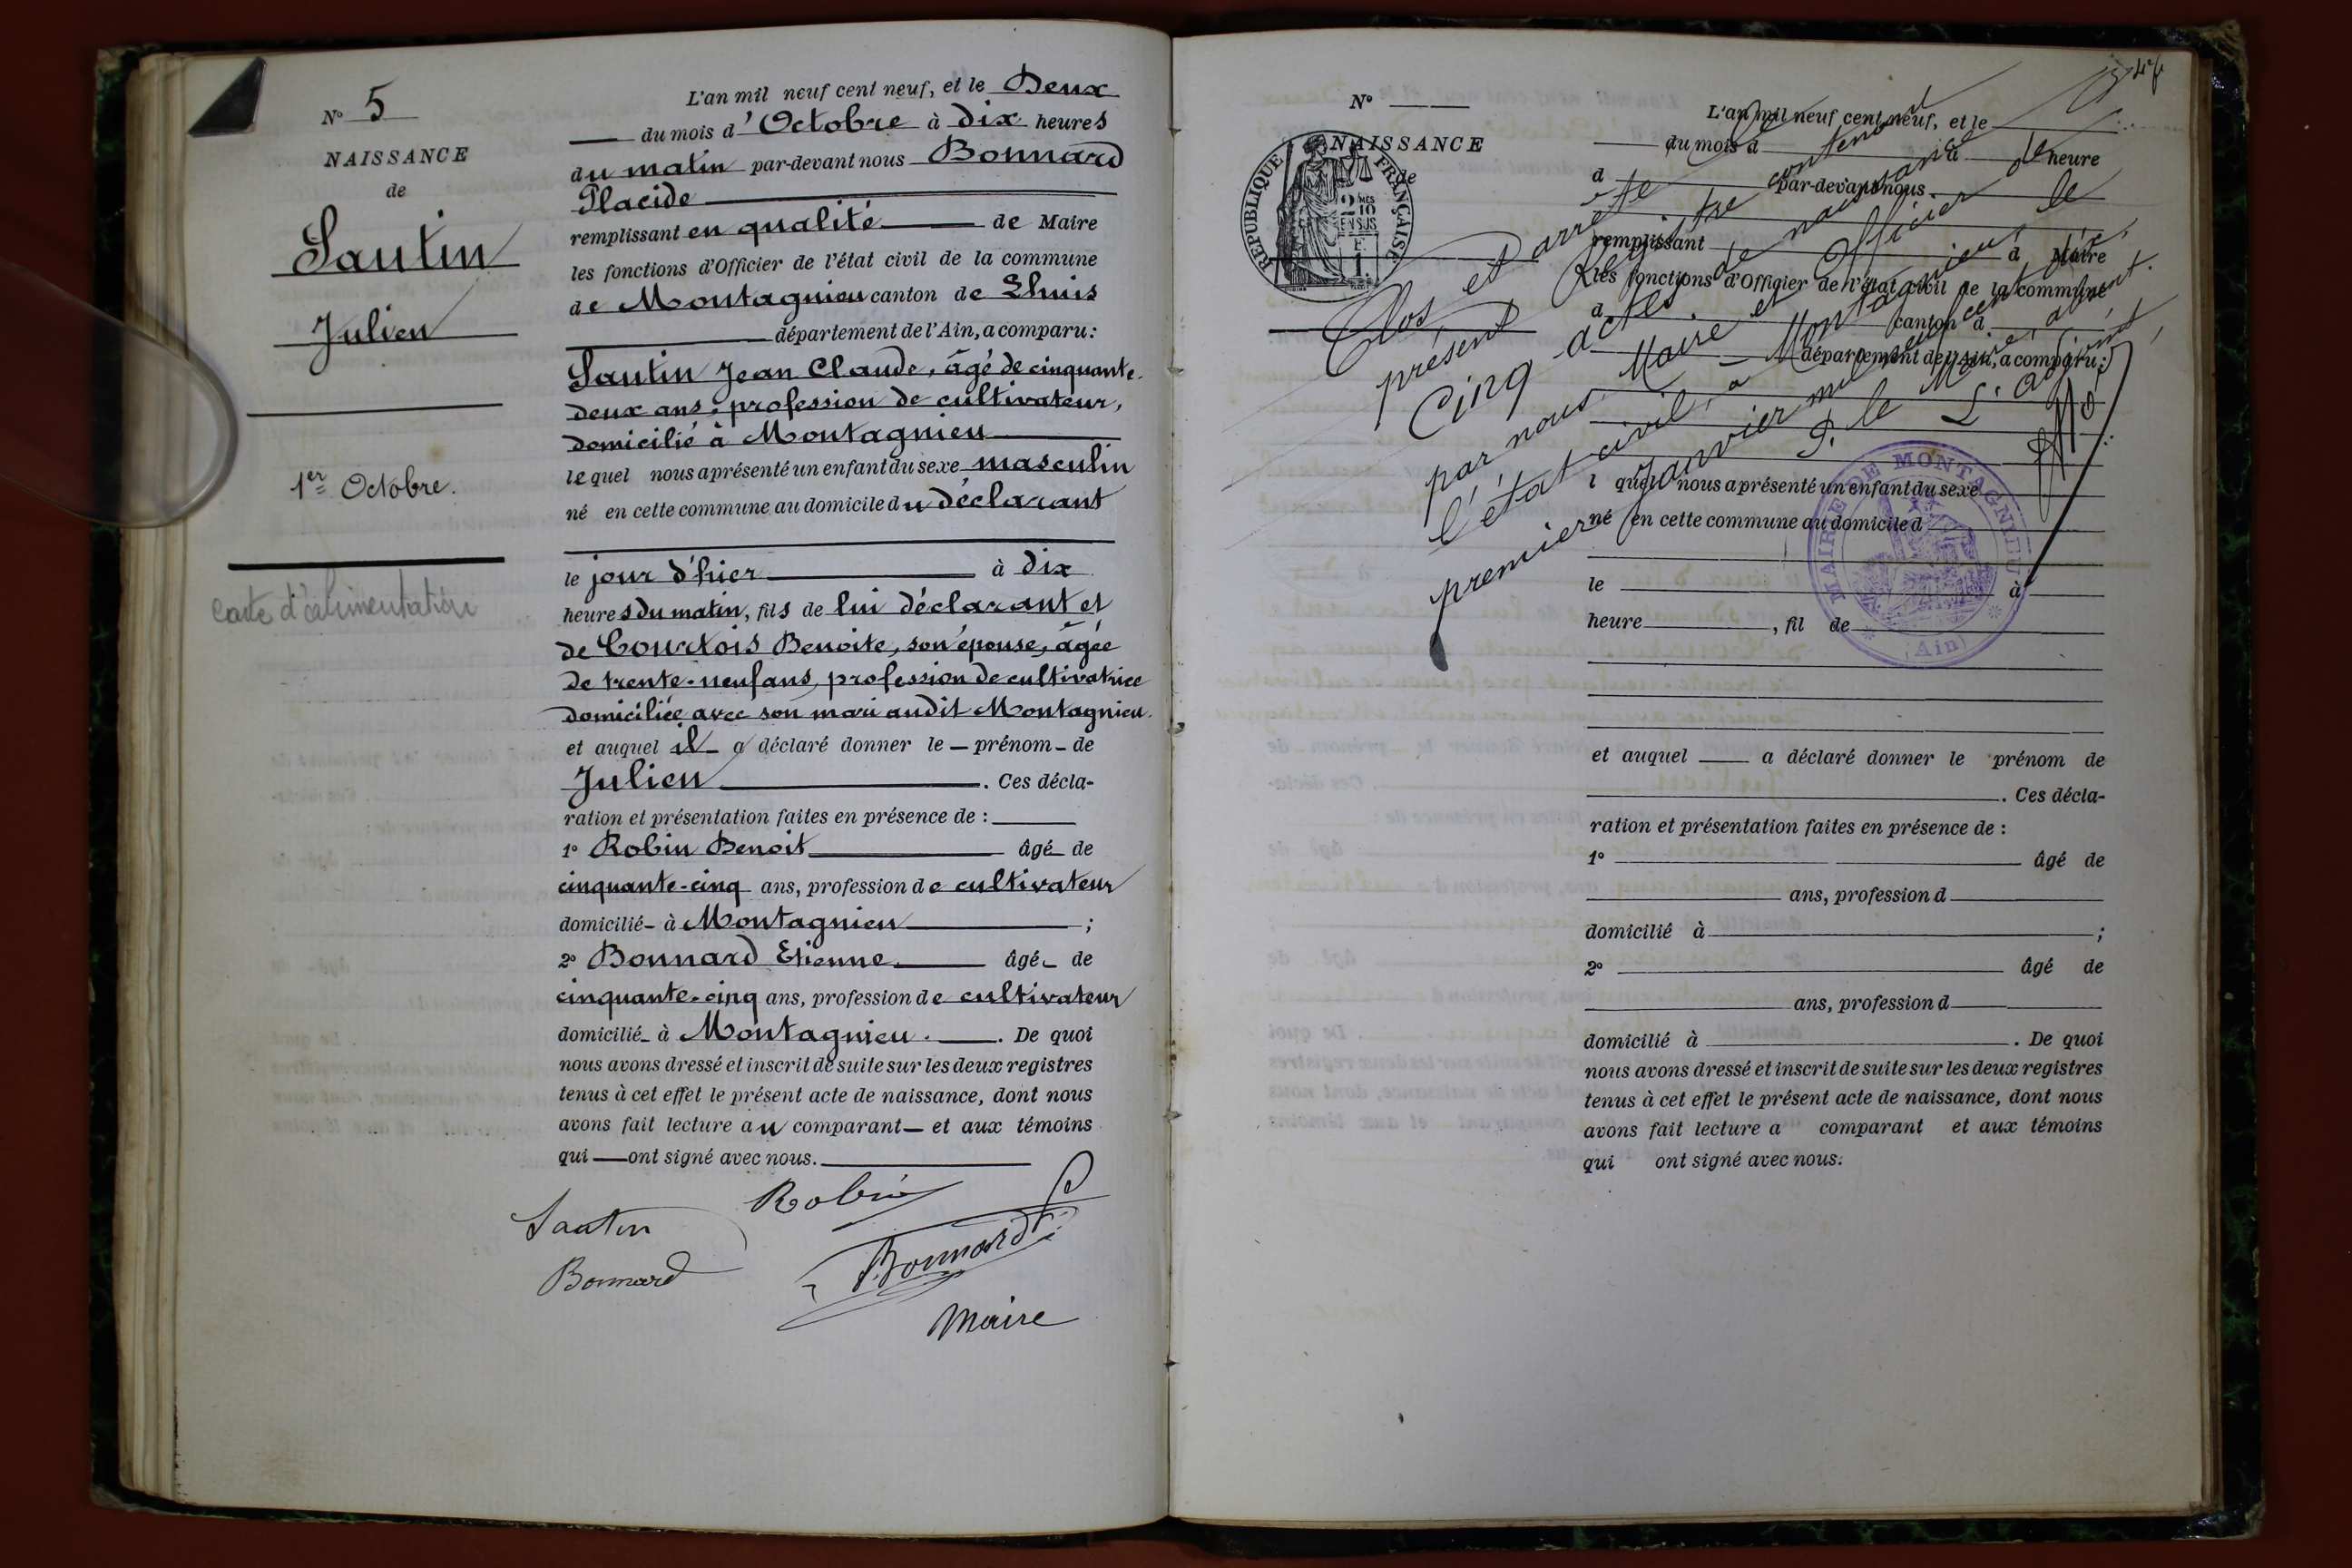 N° 5
NAISSANCE
de
Sautin
Julien
1er Octobre.
carte d'alimentation
L'an mil neuf cent neuf, et le Deux
du mois d'Octobre à dix heures
du matin par-devant nous Bonnard
Placide
remplissant en qualité de Maire
les fonctions d'Officier de l'état civil de la commune
de Montagnieu canton de Lhuis
département de l'Ain, a comparu:
Sautin Jean Claude, âgé de cinquante-
deux ans, profession de cultivateur,
domicilié à Montagnieu
lequel nous a présenté un enfant du sexe masculin
né en cette commune au domicile du déclarant
le jour d'hier à dix
heures du matin, fils de lui déclarant et
de Courtois Benoite, son épouse, âgée
de trente-neuf ans, profession de cultivatrice
domiciliée avec son mari audit Montagnieu.
et auquel il a déclaré donner le prénom de
Julien. Ces décla-
ration et présentation faites en présence de :
1° Robin Benoit âgé de
cinquante-cinq ans, profession de cultivateur
domicilié à Montagnieu ;
2° Bonnard Etienne âgé de
cinquante-cinq ans, profession de cultivateur
domicilié à Montagnieu. De quoi
nous avons dressé et inscrit de suite sur les deux registres
tenus à cet effet le présent acte de naissance, dont nous
avons fait lecture au comparant et aux témoins
qui ont signé avec nous.
Sautin
Robin
Bonnard
Bonnard
Maire
N°
NAISSANCE
de
RÉPUBLIQUE FRANÇAISE
2 MES
10
EN SUS
L'an mil neuf cent neuf, et le
du mois d à heure
d par-devant nous
remplissant d Maire
les fonctions d'Officier de l'état civil de la commune
d canton d
département de l'Ain, a comparu:
Clos et arrêté le
présent Registre contenant
Cinq actes de naissance
par nous, Maire et Officier de
l'état civil, à Montagnieu, le
premier Janvier mil neuf cent dix.
P. le Maire, absent.
L'adjoint,
MAIRIE DE MONTAGNIEU
(Ain)
l quel nous a présenté un enfant du sexe
né en cette commune au domicile d
le à
heure , fil de
et auquel a déclaré donner le prénom de
. Ces décla-
ration et présentation faites en présence de :
1° âgé de
ans, profession d
domicilié à ;
2° âgé de
ans, profession d
domicilié à . De quoi
nous avons dressé et inscrit de suite sur les deux registres
tenus à cet effet le présent acte de naissance, dont nous
avons fait lecture a comparant et aux témoins
qui ont signé avec nous.